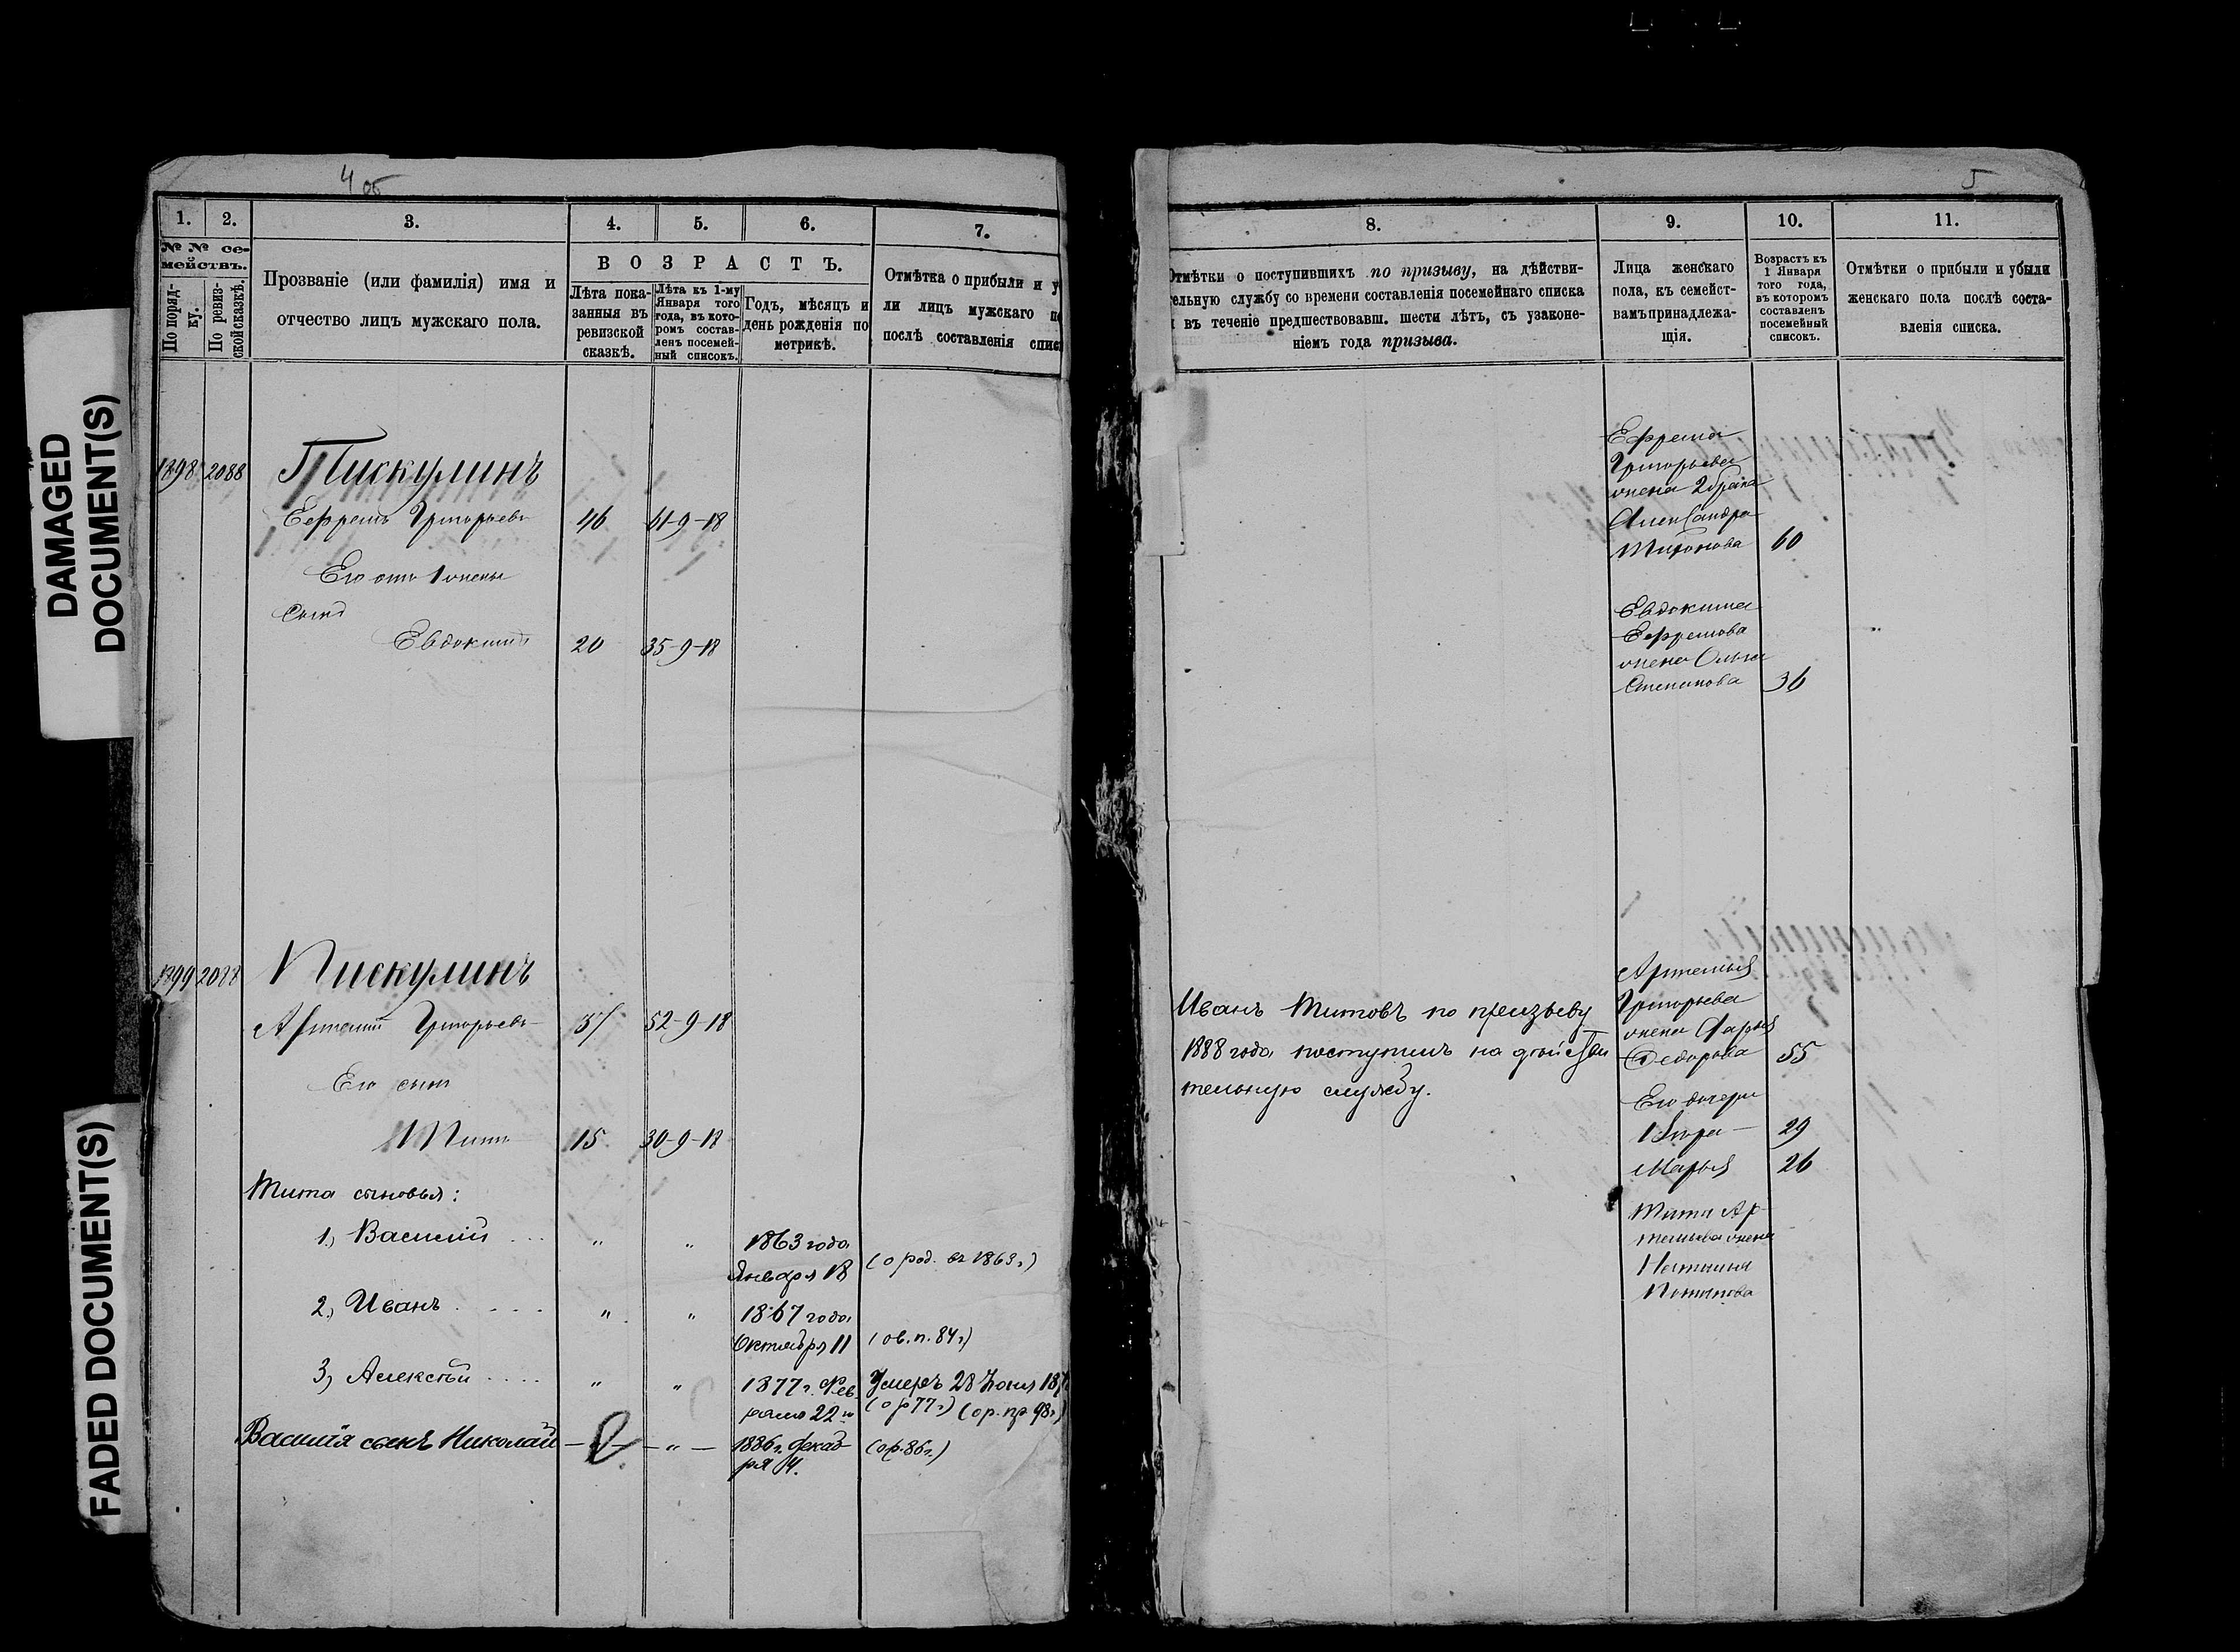 DAMAGED
DOCUMENT(S)
FADED DOCUMENT(S)
4 об
1.
2.
3.
4.
5.
6.
7.
№№ се-
мействъ.
По поряд-
ку.
По ревиз-
ской сказкѣ.
Прозваніе (или фамилія) имя и
отчество лицъ мужскаго пола.
ВОЗРАСТЪ.
Лѣта пока-
занныя въ
ревизской
сказкѣ.
Лѣта къ 1-му
Января того
года, въ кото-
ромъ состав-
ленъ посемей-
ный списокъ.
Годъ, мѣсяцъ и
день рожденія по
метрикѣ.
Отмѣтка о прибыли и у
ли лицъ мужскаго по
послѣ составленія спис
1898 2088 Пискулинъ
Ефремъ Григорьевъ 46 61-9-18
Его отъ 1 жены
сынъ
Евдокимъ 20 35-9-18
1899 2088 Пискулинъ
Артемій Григорьевъ 37 52-9-18
Его сынъ
Титъ 15 30-9-18
Тита сыновья:
1.) Василій „ „ 1863 года
Января 18 (о род. въ 1863 г.)
2.) Иванъ „ „ 1867 года
Октября 11 (ов. п. 84 г.)
3.) Алексѣй „ „ 1877 г. Фев
раля 22 го
Умеръ 28 Іюня 187
(о р 77 г.) (о р. пр 98 г.)
Василія сынъ Николай — „ — 1886 г. декаб
ря 4. (о р. 86 г.)
5
8.
9.
10.
11.
Отмѣтки о поступившихъ по призыву, на дѣйстви-
тельную службу со времени составленія посемейнаго списка
и въ теченіе предшествовавш. шести лѣтъ, съ узаконе-
ніемъ года призыва.
Лица женскаго
пола, къ семейст-
вамъ принадлежа-
щія.
Возрастъ къ
1 Января
того года,
въ которомъ
составленъ
посемейный
списокъ.
Отмѣтки о прибыли и убыли
женскаго пола послѣ соста-
вленія списка.
Ефрема
Григорьева
жена 2 брака
Александра
Миронова 60
Евдокима
Ефремова
жена Ольга
Степанова 36
Иванъ Титовъ по призыву
1888 года поступилъ на дѣйстви
тельную службу.
Артемья
Григорьева
жена Дарья
Федорова 55
Его дочери
29
Марья 26
Тита Ар
темьева жена
Наталья
Потапова